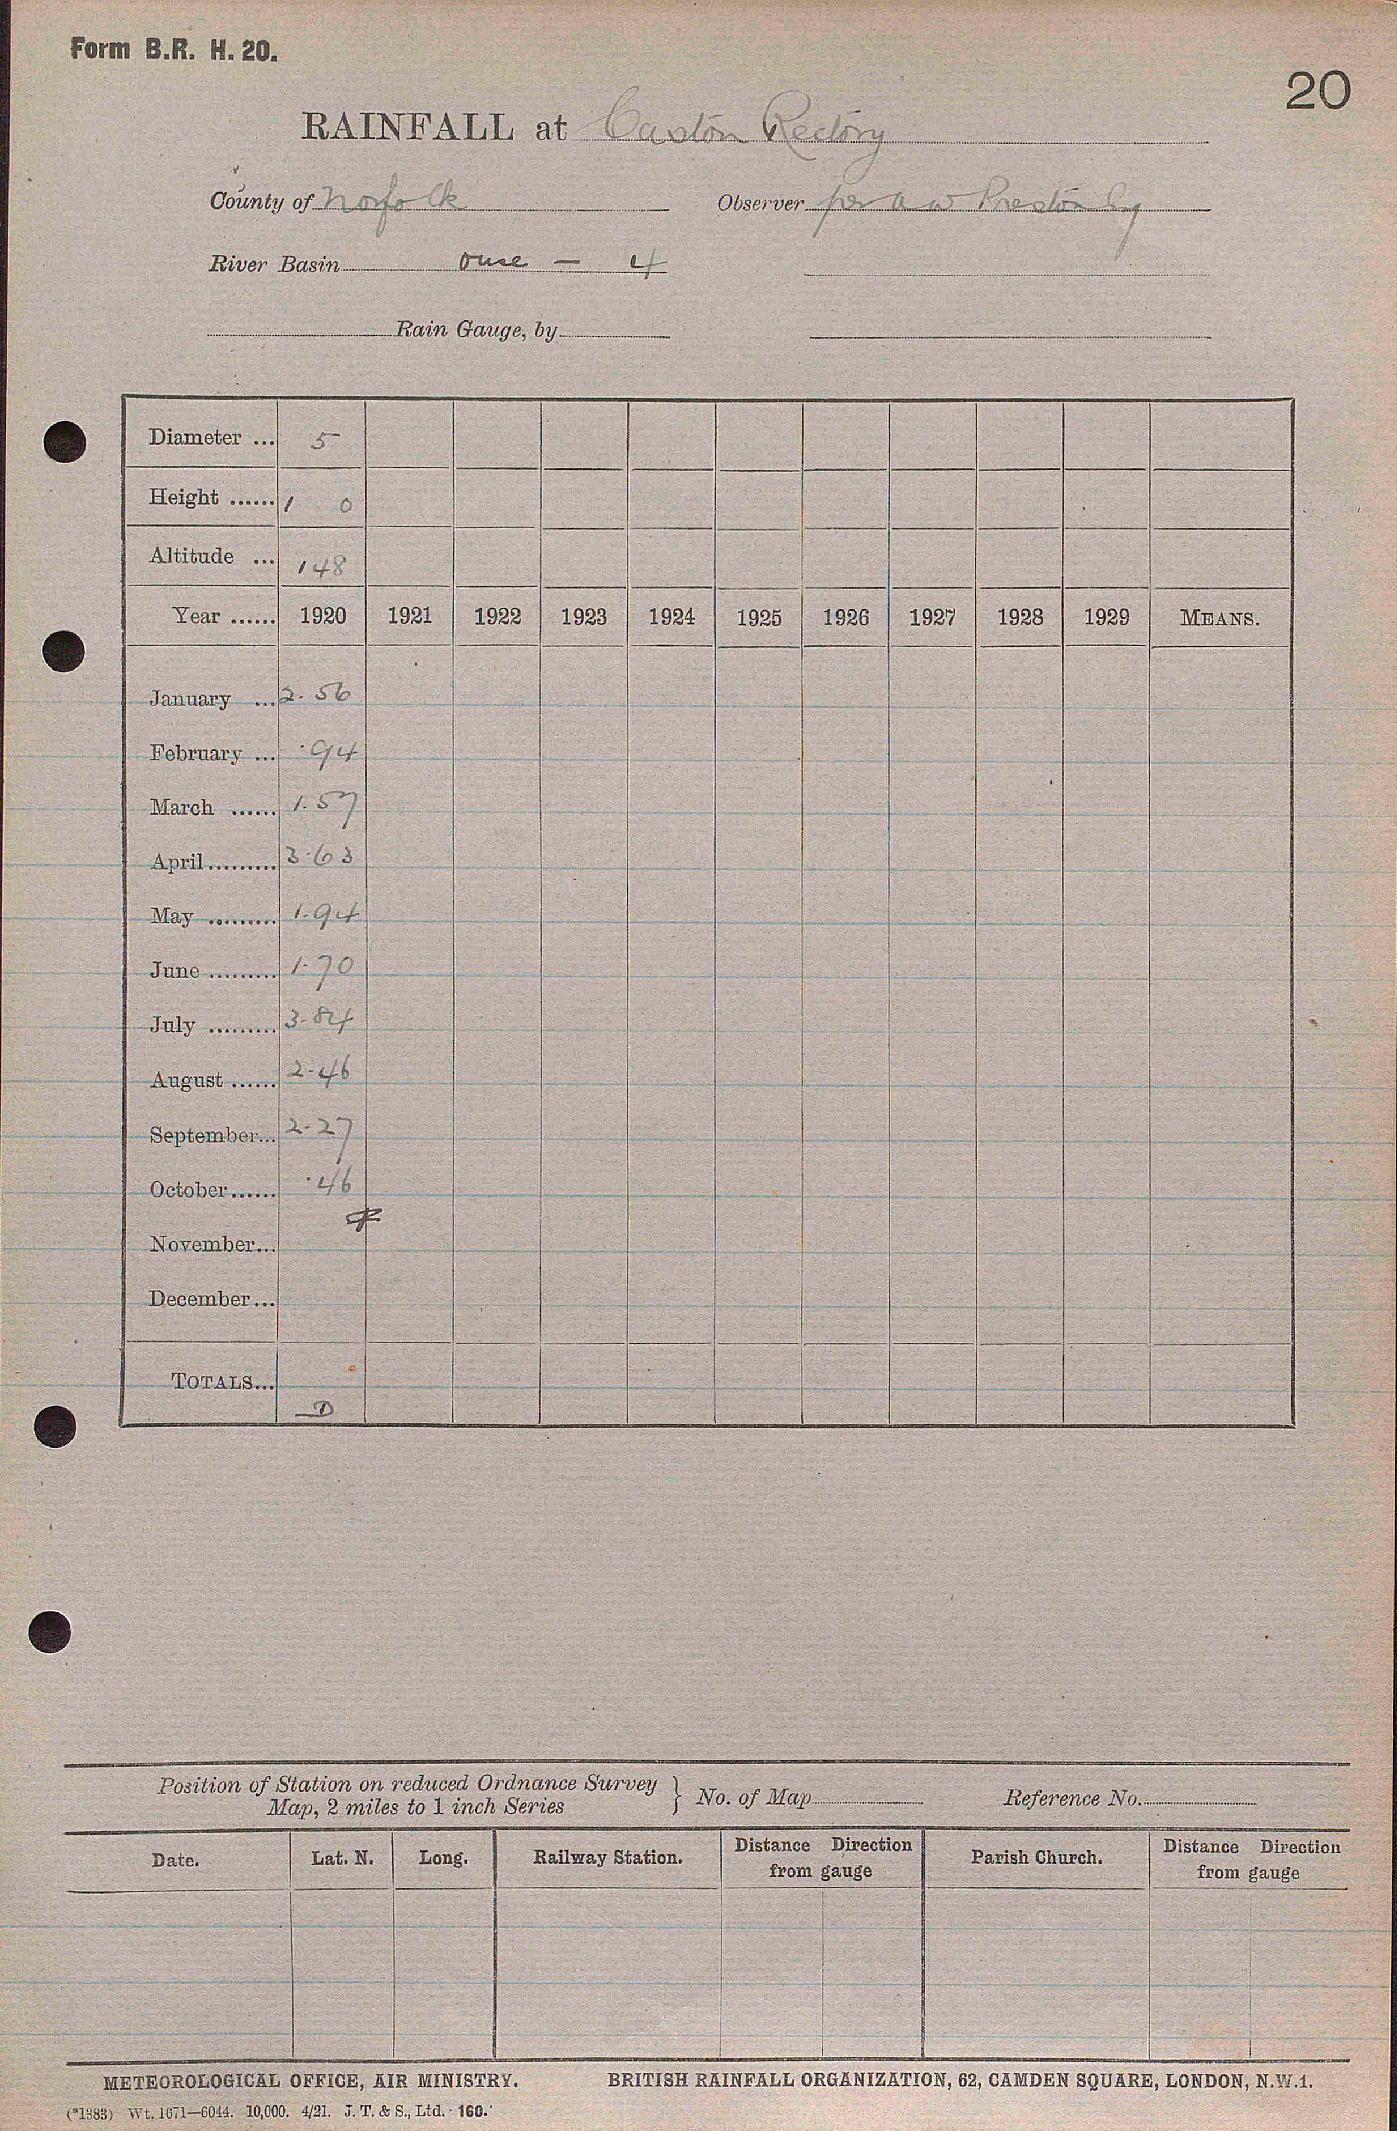 Form B.R. H. 20.
20
RAINFALL at Caston Rectory
County of Norfolk Observer per A W Preston Esq
River Basin ouse — 4
Rain Gauge, by
Diameter ... 5
Height ...... 1 0
Altitude ... 148
Year ...... 1920 1921 1922 1923 1924 1925 1926 1927 1928 1929 MEANS.
January ... 2.56
February ... .94
March ...... 1.57
April ......... 3.63
May ......... 1.94
June ......... 1.70
July ......... 3.84
August ...... 2.46
September... 2.27
October ...... .46
November...
December...
TOTALS...
D
Position of Station on reduced Ordnance Survey } No. of Map Reference No.
Map, 2 miles to 1 inch Series
Date. Lat. N. Long. Railway Station. Distance Direction from gauge Parish Church. Distance Direction from gauge
METEOROLOGICAL OFFICE, AIR MINISTRY. BRITISH RAINFALL ORGANIZATION, 62, CAMDEN SQUARE, LONDON, N.W.1.
(*1383) Wt. 1671—6044. 10,000. 4/21. J. T. & S., Ltd. 160.